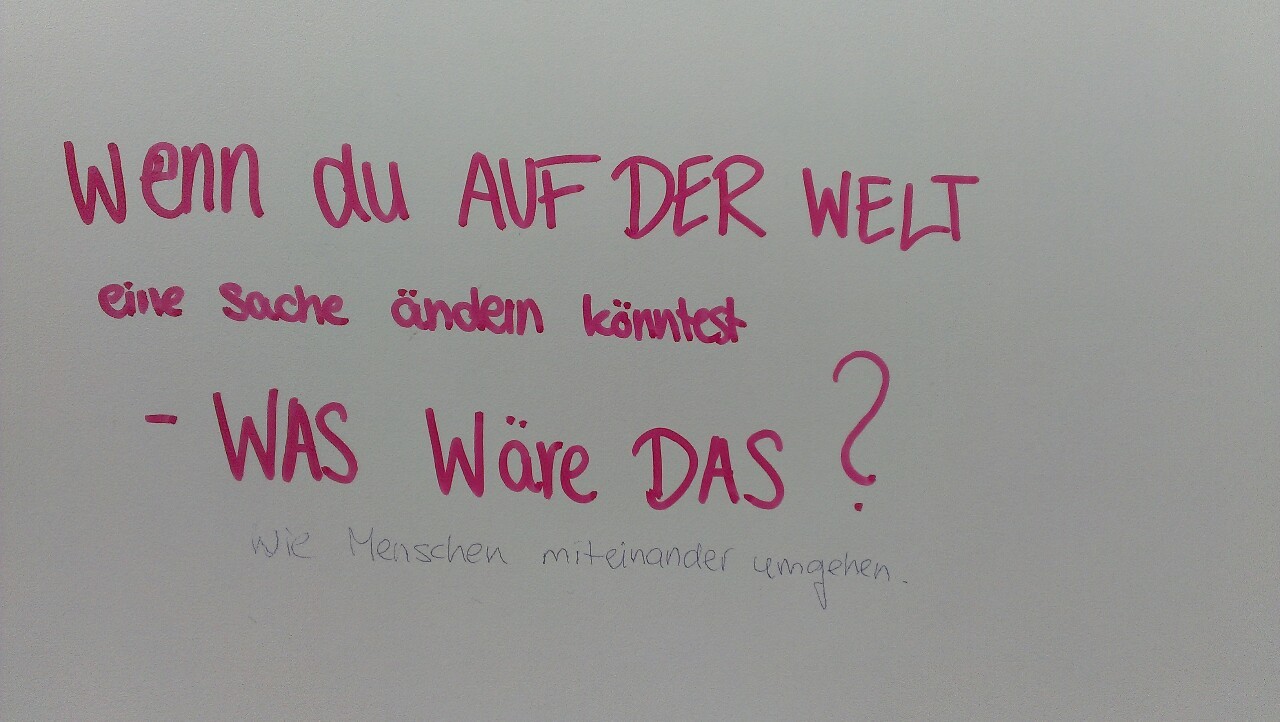 Wenn du AUF DER WELT
eine sache ändern könntest
- WAS Wäre DAS ?
Wie Menschen miteinander umgehen.